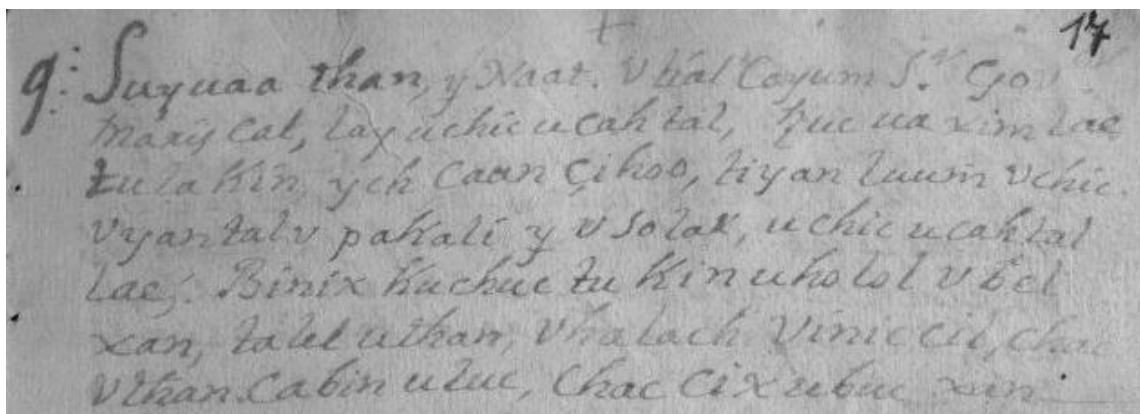 17
9: Suyuaa than, y Naat. V kat Cayum Sr. Gov
Mariscal, lay uchic ucahtal, tzuc ua xim lae
tu la kin ych Caan çihoo, tiyan luum Vchic
Vyantal v pakali y v solar, uchic ucahtal
lae. Binix Kuchuc tu Kin uholol v bel
xan, talel uthan, Vhalach Vinic cil, chac
Vthan Cabin uluc, Chac Cix ubuc xan